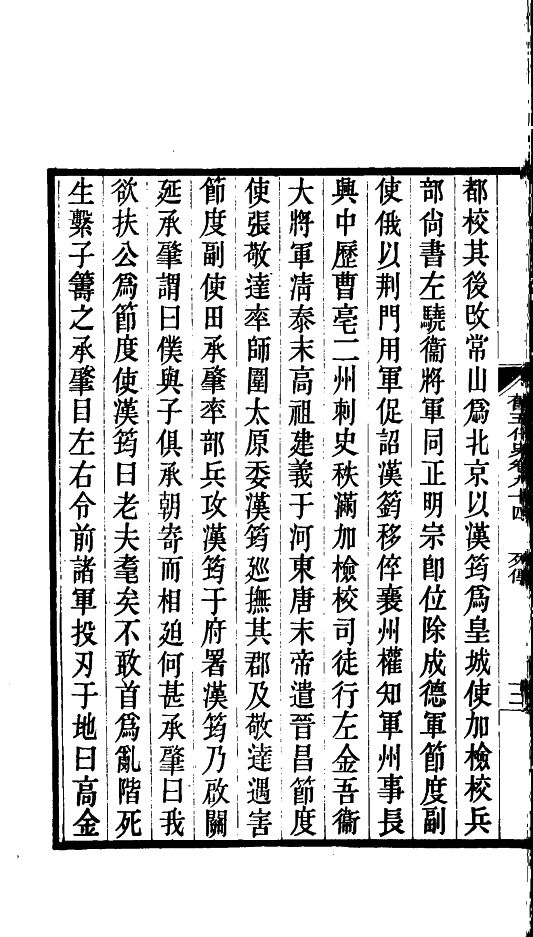 都校其後改常山爲北京以漢筠爲皇城使加檢校兵
部尙書左驍衞將軍同正明宗卽位除成德軍節度副
使俄以荆門用軍促詔漢筠移倅襄州權知軍州事長
興中歷曹亳二州刺史秩滿加檢校司徒行左金吾衞
大將軍淸泰末高祖建義于河東唐末帝遣晉昌節度
使張敬達率師圍太原委漢筠廵撫其郡及敬達遇害
節度副使田承肇率部兵攻漢筠于府署漢筠乃啟關
延承肇謂曰僕與子俱承朝寄而相廹何甚承肇曰我
欲扶公爲節度使漢筠曰老夫耄矣不敢首爲亂階死
生繫子籌之承肇目左右令前諸軍投刃于地曰高金
舊五代史卷九十四 列傳